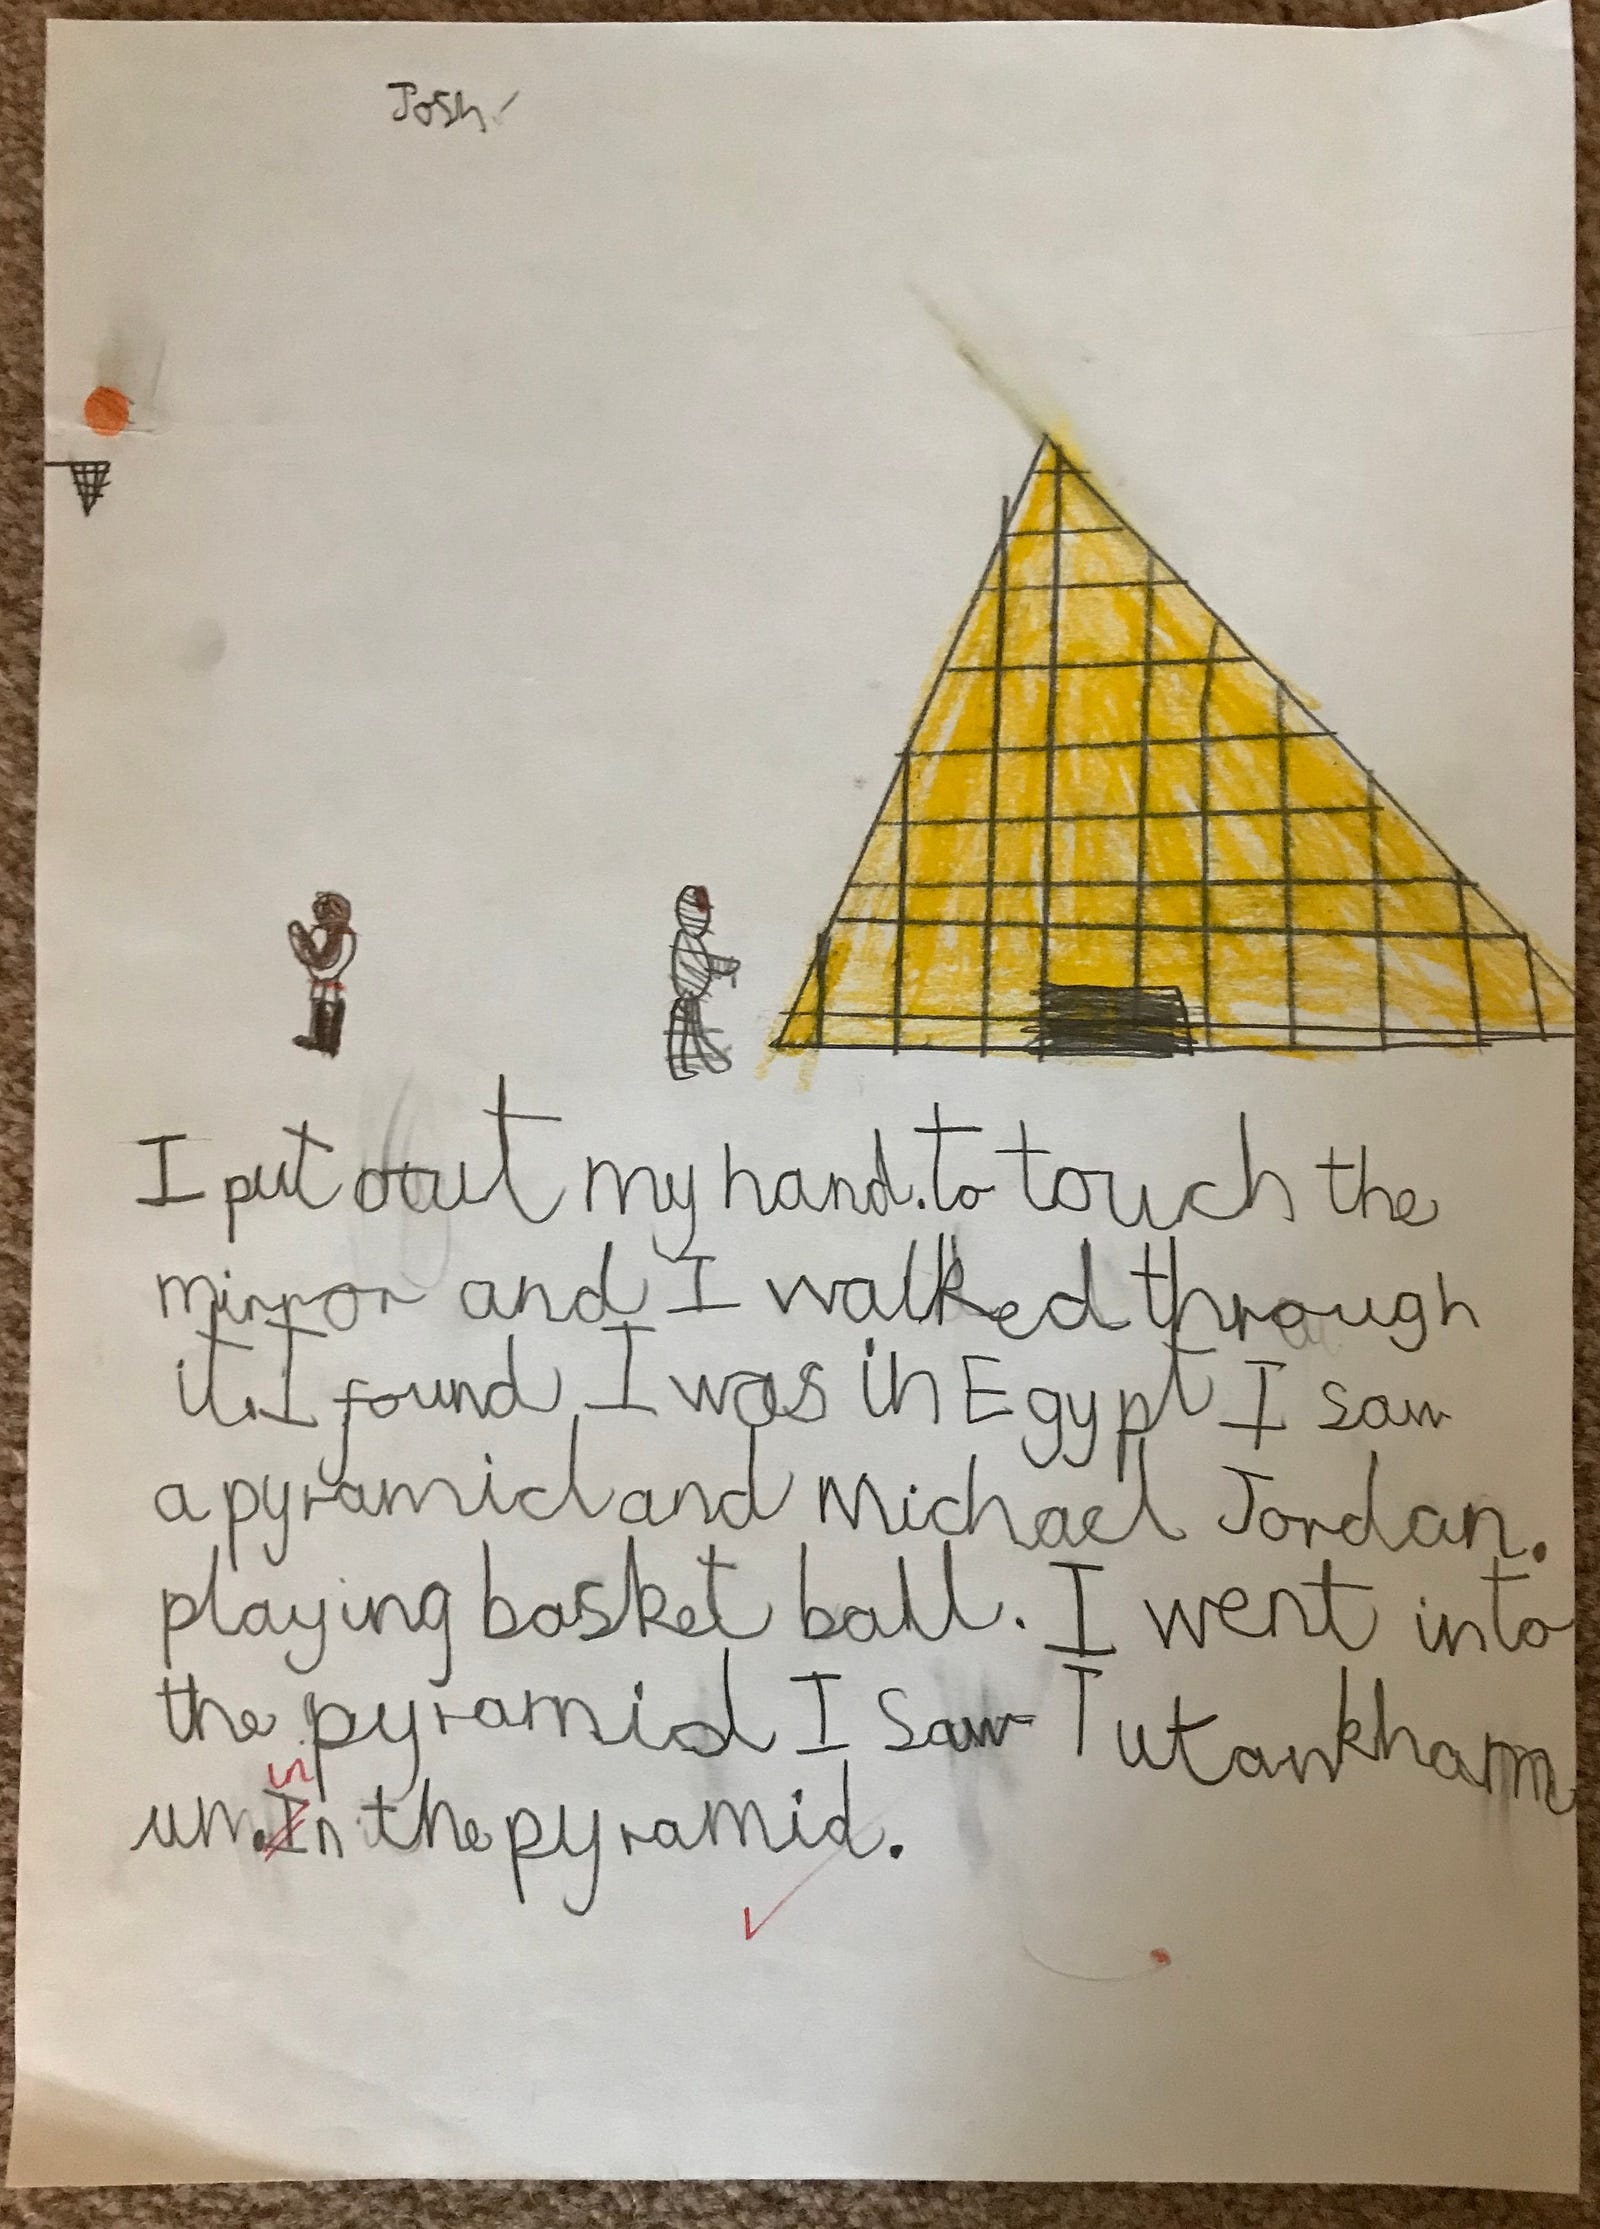 Josh
I put out my hand. to touch the
mirror and I walked through
it. I found I was in Egypt I saw
a pyramid and Michael Jordan.
playing basket ball. I went into
the pyramid I saw Tutankham
in
um. In the pyramid.